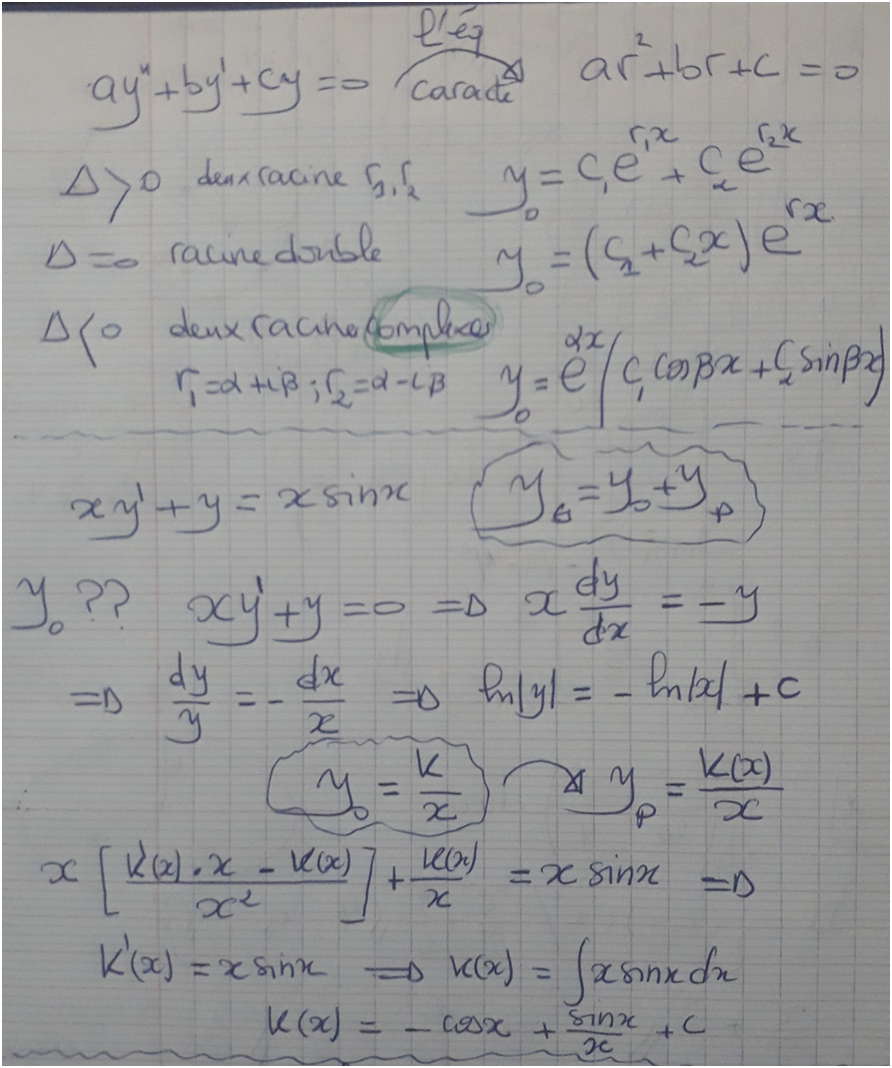 ay" + by' + cy = 0 l'éq caracté ar² + br + c = 0
Δ > 0 deux racine r₁, r₂ y₀ = C₁e^{r₁x} + C₂e^{r₂x}
Δ = 0 racine double y₀ = (C₁ + C₂x) e^{rx}
Δ < 0 deux racine complexes
r₁ = α + iβ ; r₂ = α - iβ y₀ = e^{αx} (C₁ cos βx + C₂ sin βx)
xy' + y = x sin x y_G = y₀ + y_p
y₀ ?? xy' + y = 0 ⇒ x dy/dx = -y
⇒ dy/y = - dx/x ⇒ ln|y| = - ln|x| + C
y₀ = K/x y_p = K(x)/x
x [ (K'(x) . x - K(x))/x² ] + K(x)/x = x sin x ⇒
K'(x) = x sin x ⇒ K(x) = ∫ x sin x dx
K(x) = - cos x + sin x/x + C